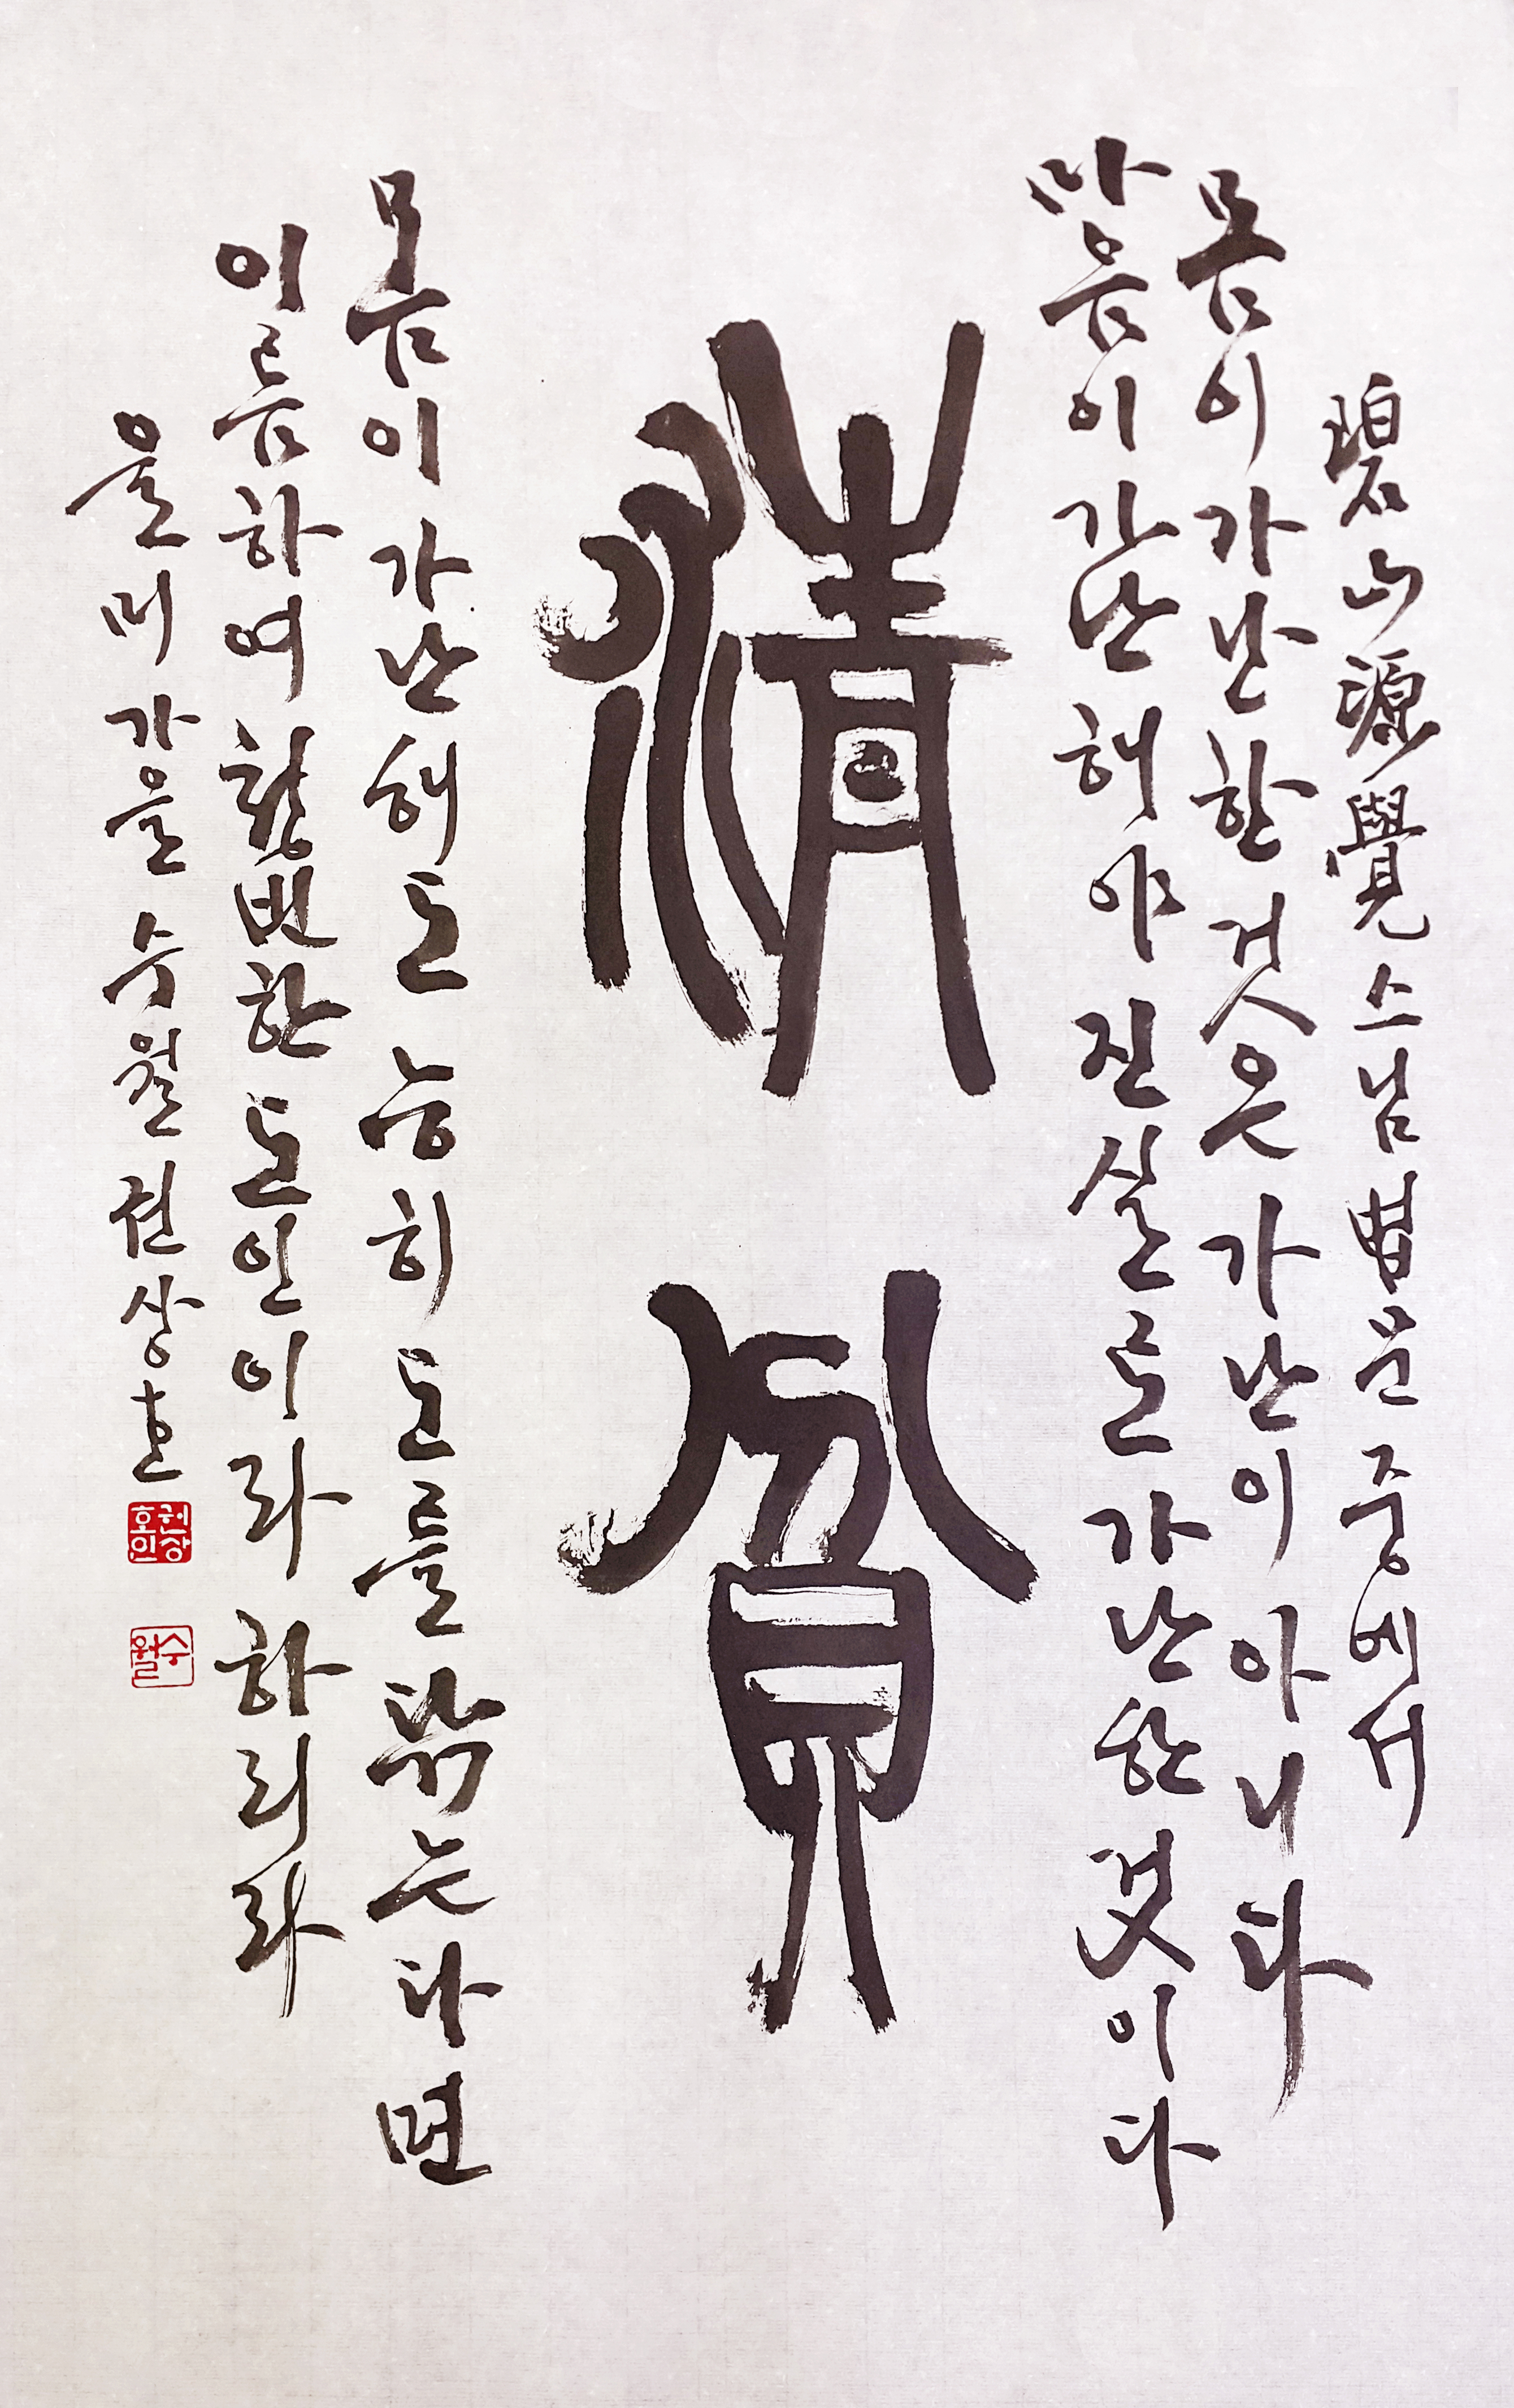 碧山 源覺 스님 법문 중에서
몸이 가난한 것은 가난이 아니다
마음이 가난해야 진실로 가난한 것이다
清貧
몸이 가난해도 능히 도를 닦는다면
이름하여 청빈한 도인이라 하리라
을미 가을 수월 권상호
권상호인
수월